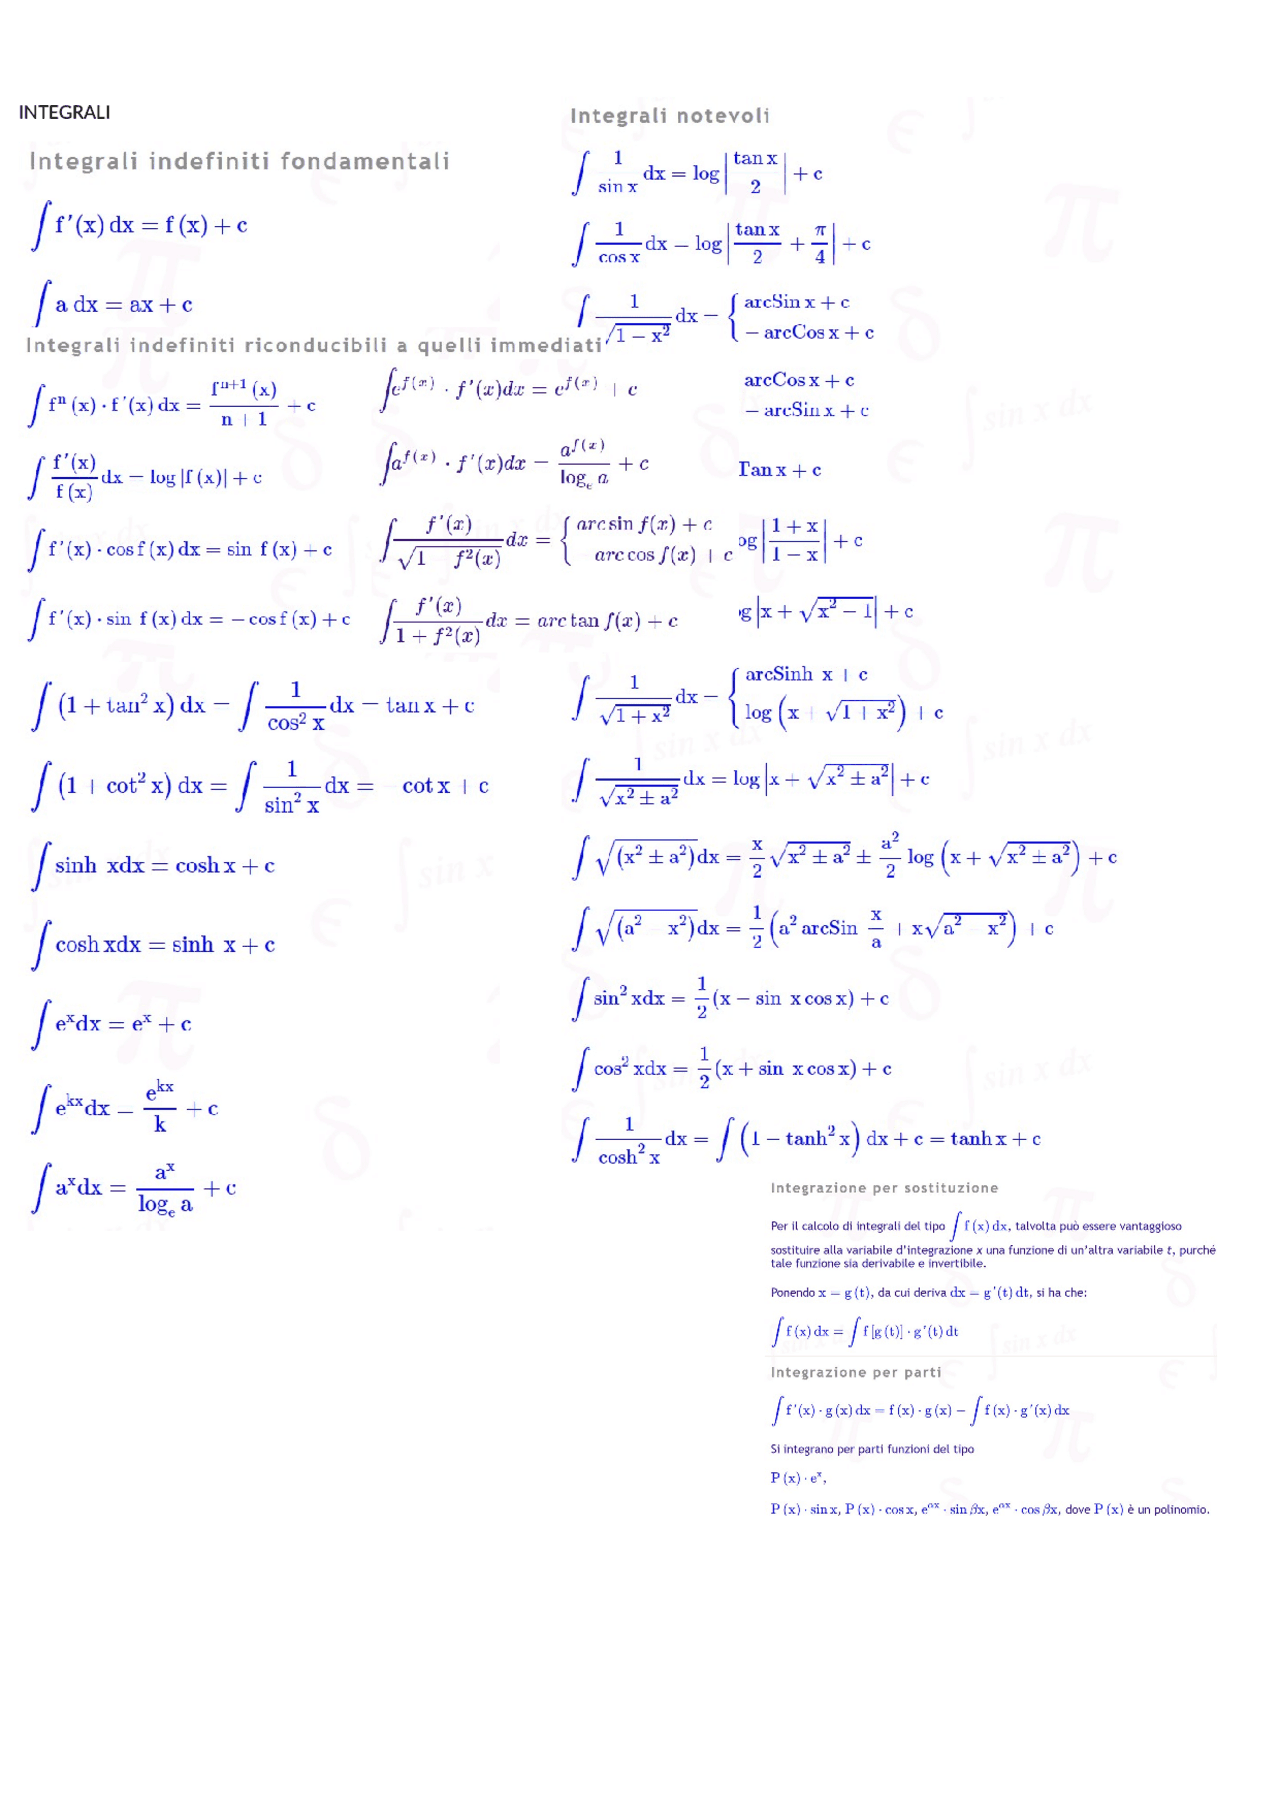 INTEGRALI
Integrali indefiniti fondamentali
∫ f'(x) dx = f (x) + c
∫ a dx = ax + c
Integrali indefiniti riconducibili a quelli immediati
∫ fⁿ (x) · f'(x) dx = fⁿ⁺¹ (x) / (n + 1) + c
∫ f'(x) / f (x) dx = log |f (x)| + c
∫ f'(x) · cos f (x) dx = sin f (x) + c
∫ f'(x) · sin f (x) dx = − cos f (x) + c
∫ e^f(x) · f'(x)dx = e^f(x) + c
∫ a^f(x) · f'(x)dx = a^f(x) / logₑ a + c
∫ f'(x) / √(1 f²(x)) dx = { arcsin f(x) + c
arccos f(x) + c
∫ f'(x) / (1 + f²(x)) dx = arctan f(x) + c
∫ (1 + tan² x) dx = ∫ 1 / cos² x dx = tan x + c
∫ (1 + cot² x) dx = ∫ 1 / sin² x dx = cot x + c
∫ sinh xdx = cosh x + c
∫ cosh xdx = sinh x + c
∫ eˣdx = eˣ + c
∫ e^kx dx = e^kx / k + c
∫ aˣdx = aˣ / logₑ a + c
Integrali notevoli
∫ 1 / sin x dx = log | tan x / 2 | + c
∫ 1 / cos x dx = log | tan x / 2 + π / 4 | + c
∫ 1 / √(1 − x²) dx = { arcSin x + c
− arcCos x + c
arcCos x + c
− arcSin x + c
Tan x + c
og | (1 + x) / (1 − x) | + c
g |x + √(x² − 1)| + c
∫ 1 / √(1 + x²) dx = { arcSinh x + c
log (x + √(1 + x²)) + c
∫ 1 / √(x² ± a²) dx = log |x + √(x² ± a²)| + c
∫ √(x² ± a²) dx = x/2 √(x² ± a²) ± a²/2 log (x + √(x² ± a²)) + c
∫ √(a² x²) dx = 1/2 (a² arcSin x/a + x√(a² x²)) + c
∫ sin² xdx = 1/2 (x − sin x cos x) + c
∫ cos² xdx = 1/2 (x + sin x cos x) + c
∫ 1 / cosh² x dx = ∫ (1 − tanh² x) dx + c = tanh x + c
Integrazione per sostituzione
Per il calcolo di integrali del tipo ∫ f (x) dx, talvolta può essere vantaggioso
sostituire alla variabile d'integrazione x una funzione di un'altra variabile t, purché
tale funzione sia derivabile e invertibile.
Ponendo x = g (t), da cui deriva dx = g'(t) dt, si ha che:
∫ f (x) dx = ∫ f [g (t)] · g'(t) dt
Integrazione per parti
∫ f'(x) · g (x) dx = f (x) · g (x) − ∫ f (x) · g'(x) dx
Si integrano per parti funzioni del tipo
P (x) · eˣ,
P (x) · sin x, P (x) · cos x, e^αx · sin βx, e^αx · cos βx, dove P (x) è un polinomio.